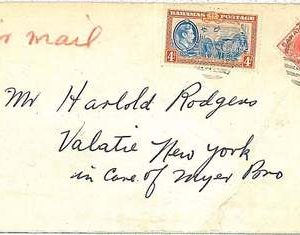 air mail
BAHAMAS POSTAGE
4d 4d
Mr Harlold Rodgers
Valatie New York
in Care of Myer Bro